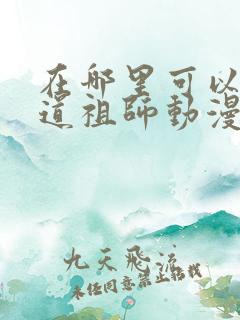 在哪里可以
道祖師動漫
九天飛流
未经同意禁止转载